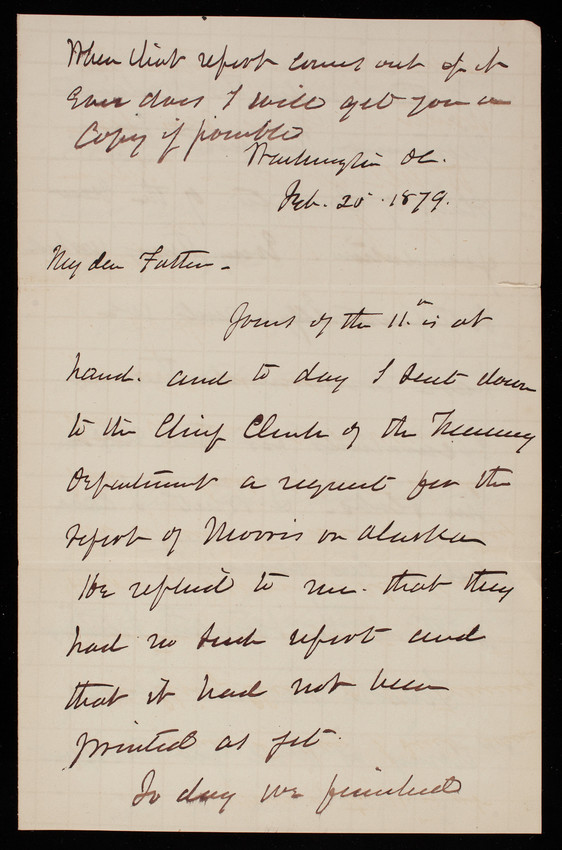 When that report comes out if it
Ever does I will get you a
Copy if possible
Washington DC.
Feb. 25. 1879.
My dear Father -
Yours of the 11th is at
hand. and to day I sent down
to the Chief Clerk of the Treasury
Department a request for the
report of Morris on Alaska
He replied to me. that they
had no such report and
that it had not been
printed as yet.
To day we finished